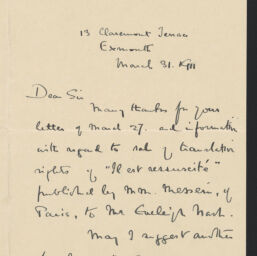 13 Claremont Terrace
Exmouth
March 31. 1911
Dear Sir
Many thanks for your
letter of March 27. and information
with regard to sale of translation
rights of "Il est ressuscité"
published by Mm. Messein, of
Paris, to Mr Eveleigh Nash.
May I suggest another